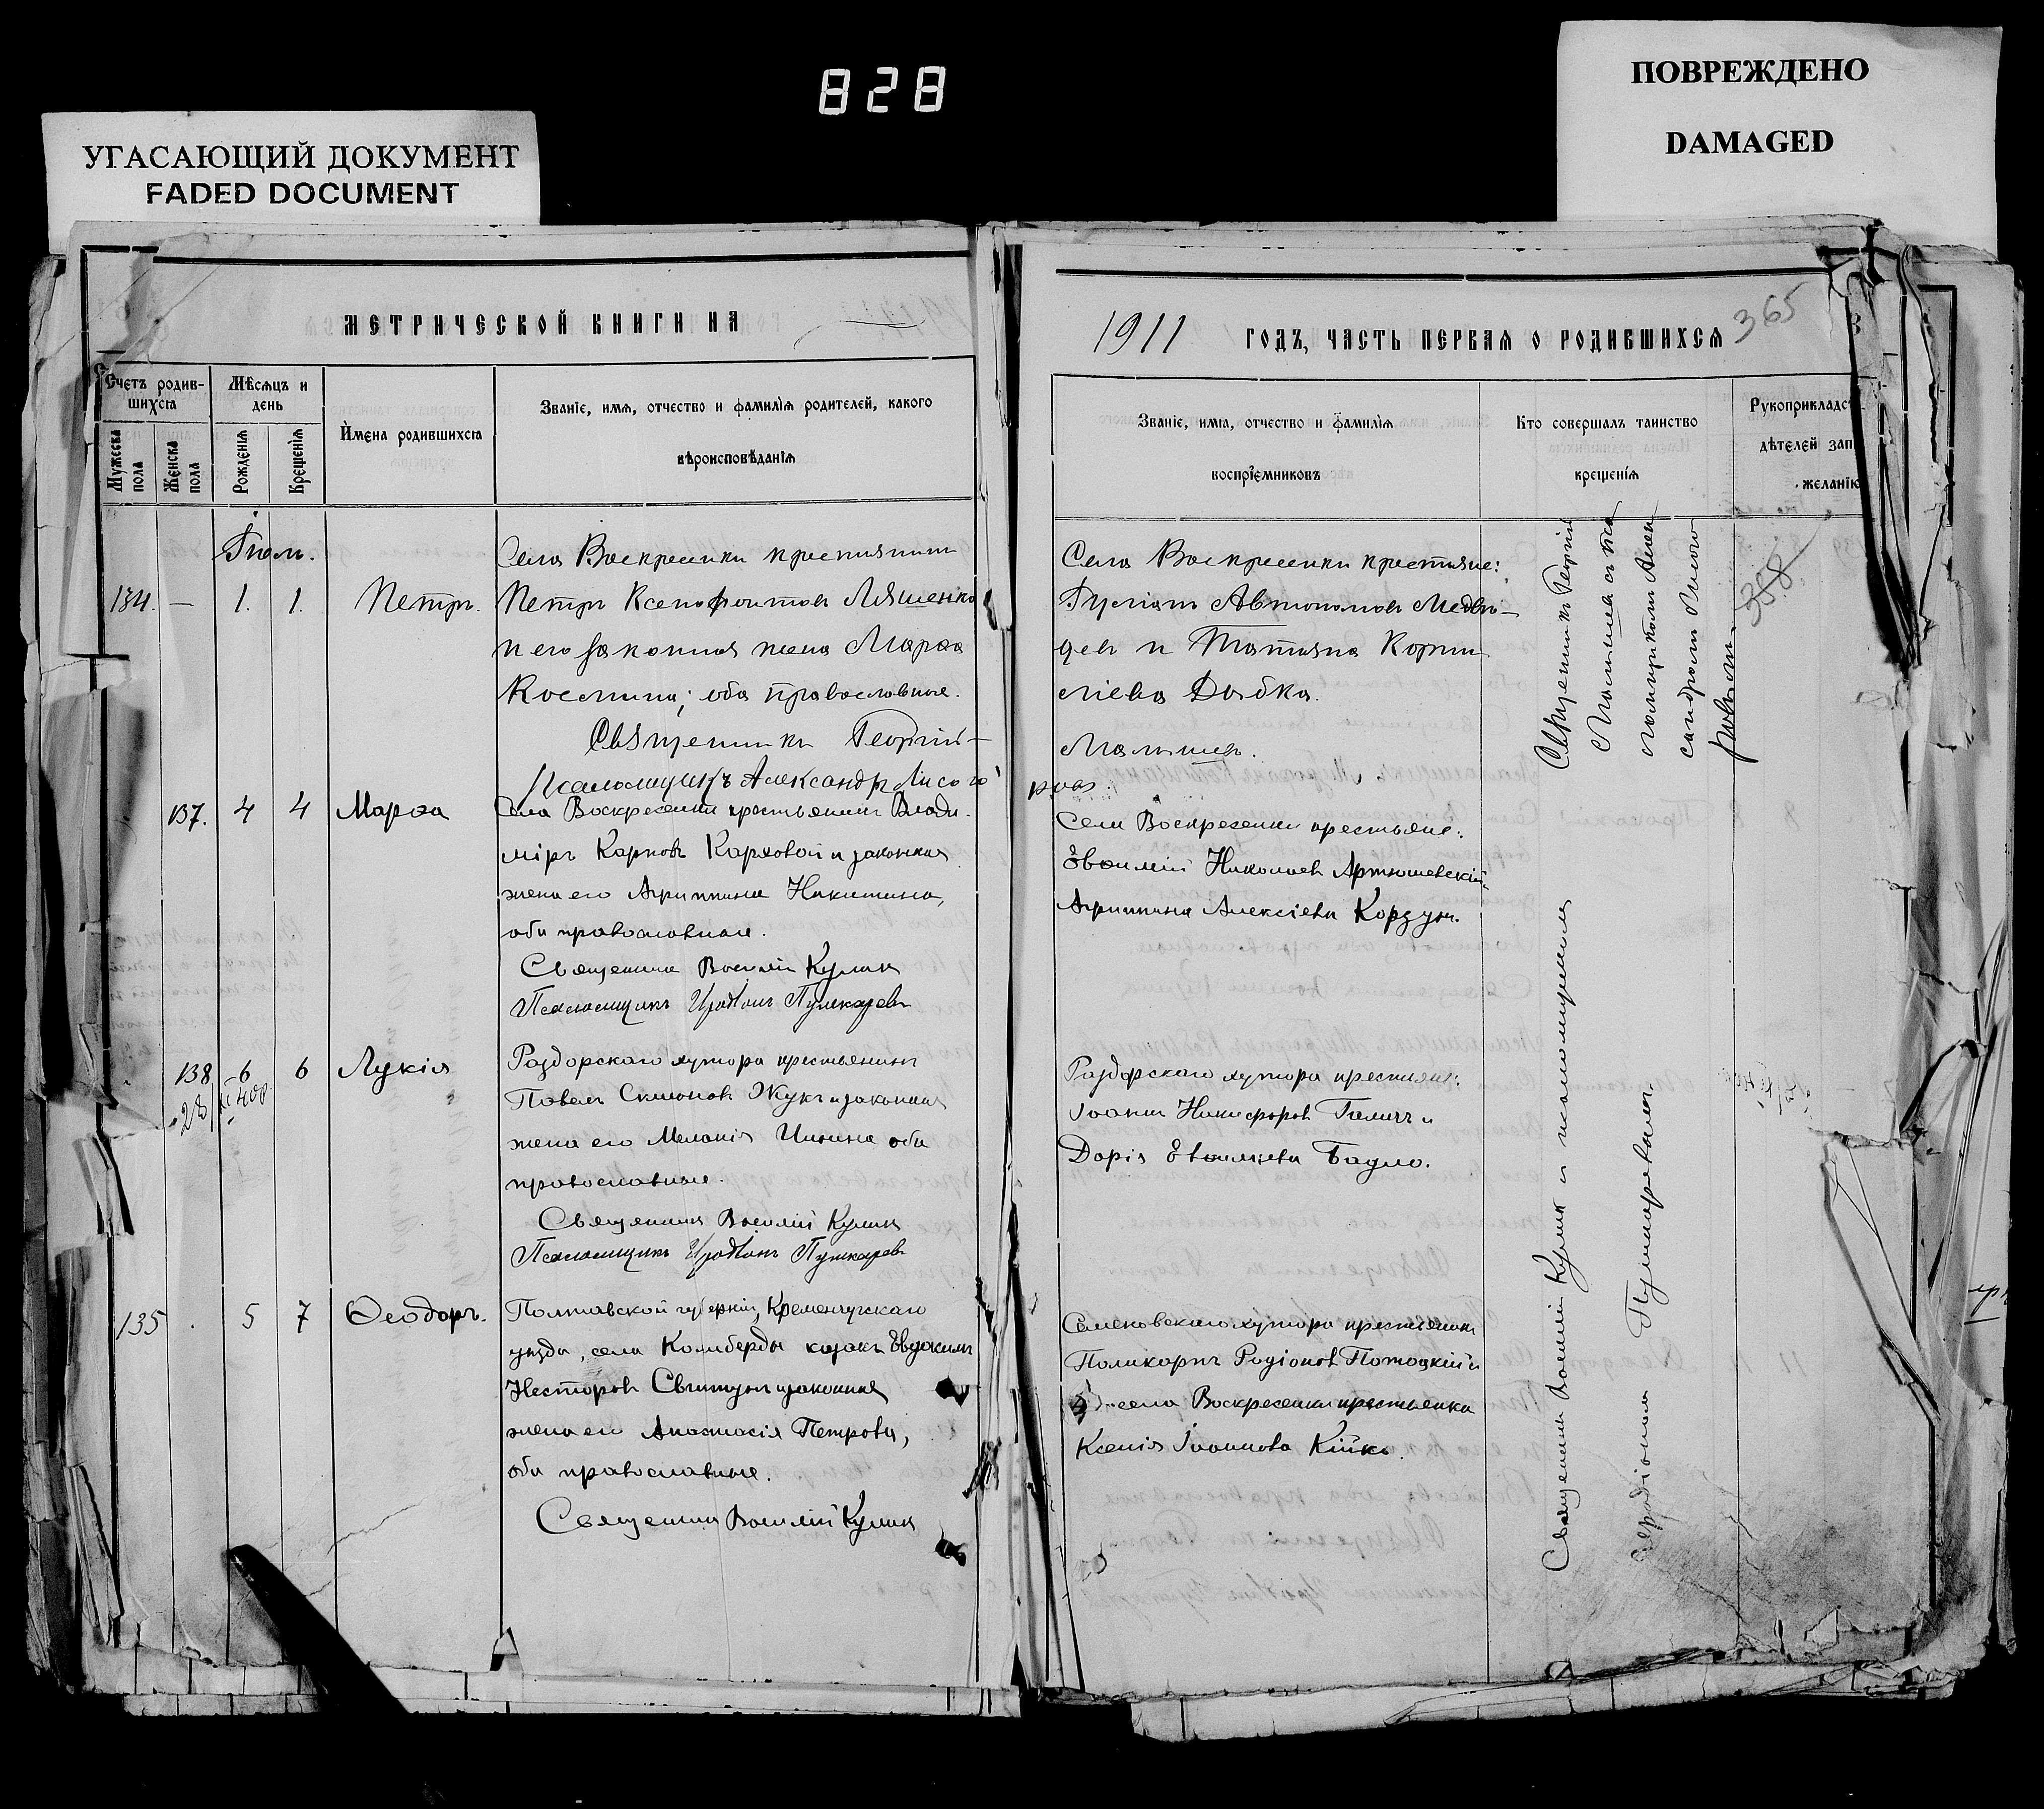 828
УГАСАЮЩИЙ ДОКУМЕНТ
FADED DOCUMENT
ПОВРЕЖДЕНО
DAMAGED
МЕТРИЧЕСКОЙ КНИГИ НА
Счетъ родив-
шихся
Мѣсяцъ и
день
Мужеска
пола
Женска
пола
Рожденія
Крещенія
Имена родившихся
Званіе, имя, отчество и фамилія родителей, какого
вѣроисповѣданія
Іюль.
134. — 1. 1. Петръ.
Села Воскресенки крестьянинъ
Петръ Ксенофонтовъ Ляшенко
и его законная жена Марѳа
Космина; оба православные.
Священникъ Георгій
Псаломщикъ Александръ Лисого
137. 4 4 Марѳа
Села Воскресенки крестьянинъ Влади-
міръ Карповъ Карловой и законная
жена его Агриппина Никитина,
оба православные.
Священникъ Василій Куликъ
Псаломщикъ Иродіонъ Пушкаревъ
138 6 6 Лукія
28
Раздорскаго хутора крестьянинъ
Павелъ Симоновъ Жукъ и законная
жена его Меланія Ильина оба
православные.
Священникъ Василій Куликъ
Псаломщикъ Иродіонъ Пушкаревъ
135 5 7 Ѳеодоръ.
Полтавской губерніи, Кременчугскаго
уѣзда, села Колиберды козакъ Евдокимъ
Несторовъ и законная
жена его Анастасія Петрова,
оба православные.
Священникъ Василій Куликъ
1911 ГОДЪ, ЧАСТЬ ПЕРВАЯ О РОДИВШИХСЯ
365
Званіе, имя, отчество и фамилія
воспріемниковъ
Кто совершалъ таинство
крещенія
Рукоприкладст
дѣтелей зап
желанію
Села Воскресенки крестьяне:
Автономовъ Медвѣ-
девъ и Татіана Корни-
ліева Дыбка.
Малышевъ.
ровъ.
Села Воскресенки крестьяне:
Евѳимій Николаевъ Артюшевскій
Агриппина Алексіева Кордунъ.
Раздорскаго хутора крестьяне:
Іоаннъ Никифоровъ Галичъ и
Дарія Евѳиміева Бадло.
хутора крестьянинъ
Поликарпъ Родіоновъ Потоцкій и
села Воскресенки крестьянка
Ксенія Іоаннова Кійко.
Священникъ Георгій
Малышевъ съ пса-
ломщикомъ Алек-
сандромъ Лисого-
ровымъ.
358
Священникъ Василій Куликъ и псаломщикомъ
Иродіономъ Пушкаревымъ.